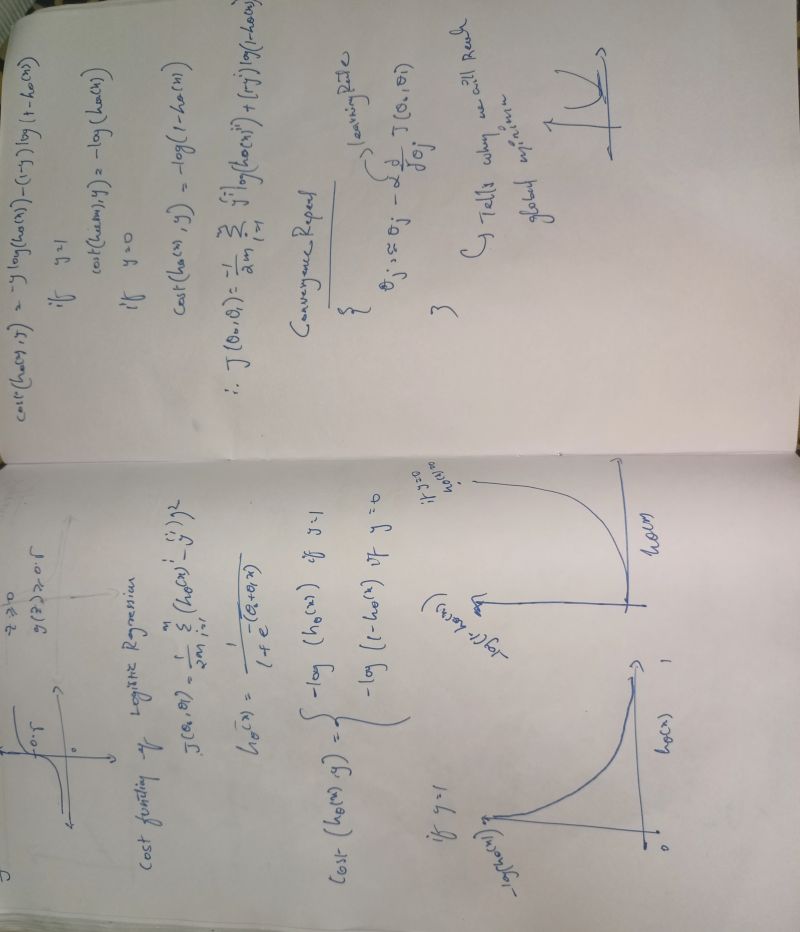 z ≥ 0
g(z) ≥ 0.5
0.5
0
Cost function of Logistic Regression
J(θ0, θ1) = 1/2m Σ i=1 m (hθ(x)^i - y^(i))^2
hθ(x) = 1/1+e^-(θ0+θ1x)
Cost (hθ(x), y) = { -log (hθ(x)) if y=1
-log (1-hθ(x)) if y=0
if y=1
-log(hθ(x))
0
hθ(x)
1
if y=0
log(1-hθ(x))
hθ(x)
cost(hθ(x), y) = -y log(hθ(x)) - (1-y) log(1-hθ(x))
if y=1
cost(hθ(x), y) = -log(hθ(x))
if y=0
cost(hθ(x), y) = -log(1-hθ(x))
∴ J(θ0, θ1) = -1/2m Σ i=1 m y^i log(hθ(x)^i) + (1-y) log(1-hθ(x))
Convergence Repeat
{
→ learning Rate
θj := θj - α ∂/∂θj J(θ0, θ1)
}
↳ Tells when we will Reach
global minima